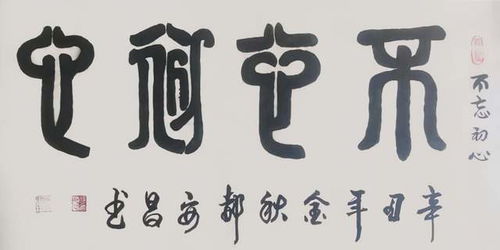 不忘初心
不忘初心
辛丑年金秋郝安昌书